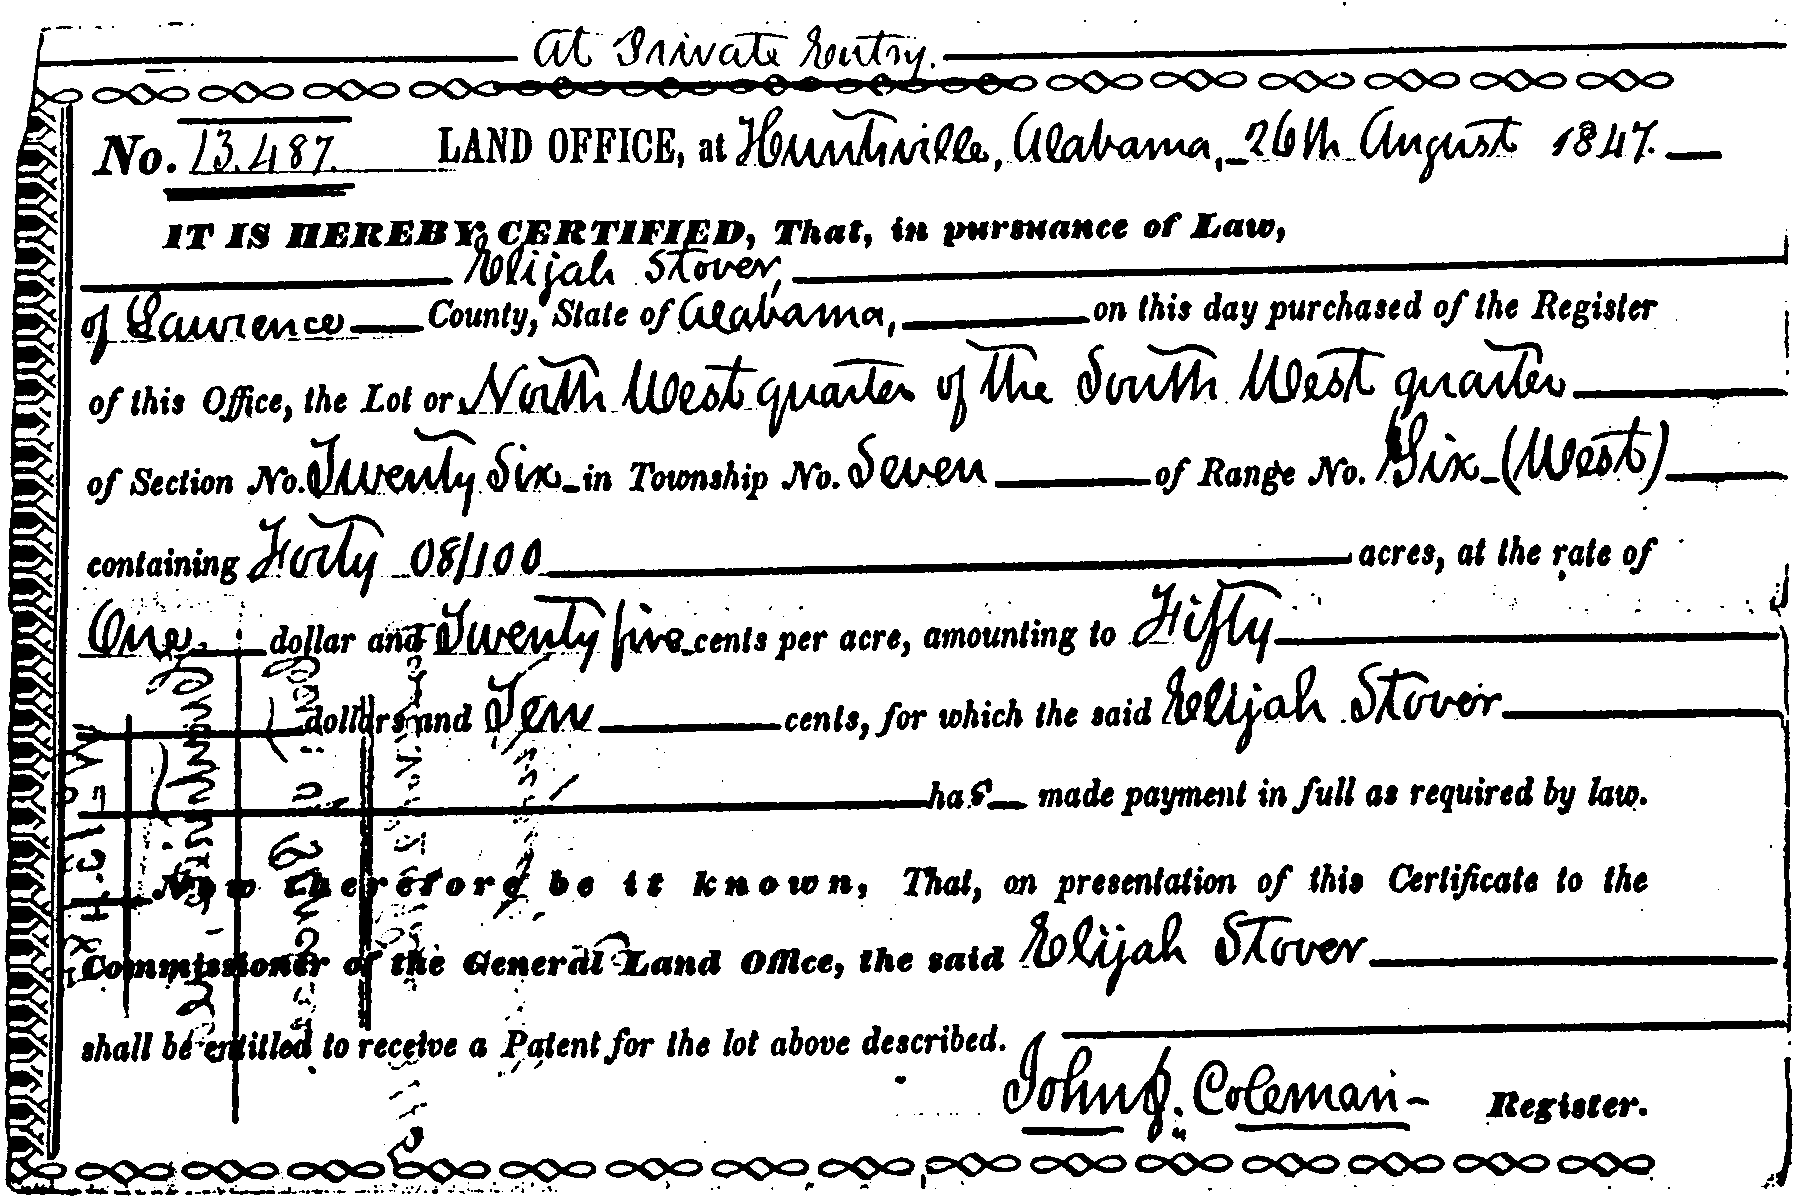 At Private Entry.
No. 13.487. LAND OFFICE, at Huntsville, Alabama, 26th August 1847.
IT IS HEREBY CERTIFIED, That, in pursuance of Law,
Elijah Stover,
of Lawrence County, State of Alabama, on this day purchased of the Register
of this Office, the Lot or North West quarter of the South West quarter
of Section No. Twenty Six in Township No. Seven of Range No. Six (West)
containing Forty 08/100 acres, at the rate of
One dollar and Twenty five cents per acre, amounting to Fifty
dollars and Ten cents, for which the said Elijah Stover
has made payment in full as required by law.
Now therefore be it known, That, on presentation of this Certificate to the
Commissioner of the General Land Office, the said Elijah Stover
shall be entitled to receive a Patent for the lot above described.
John J. Coleman Register.